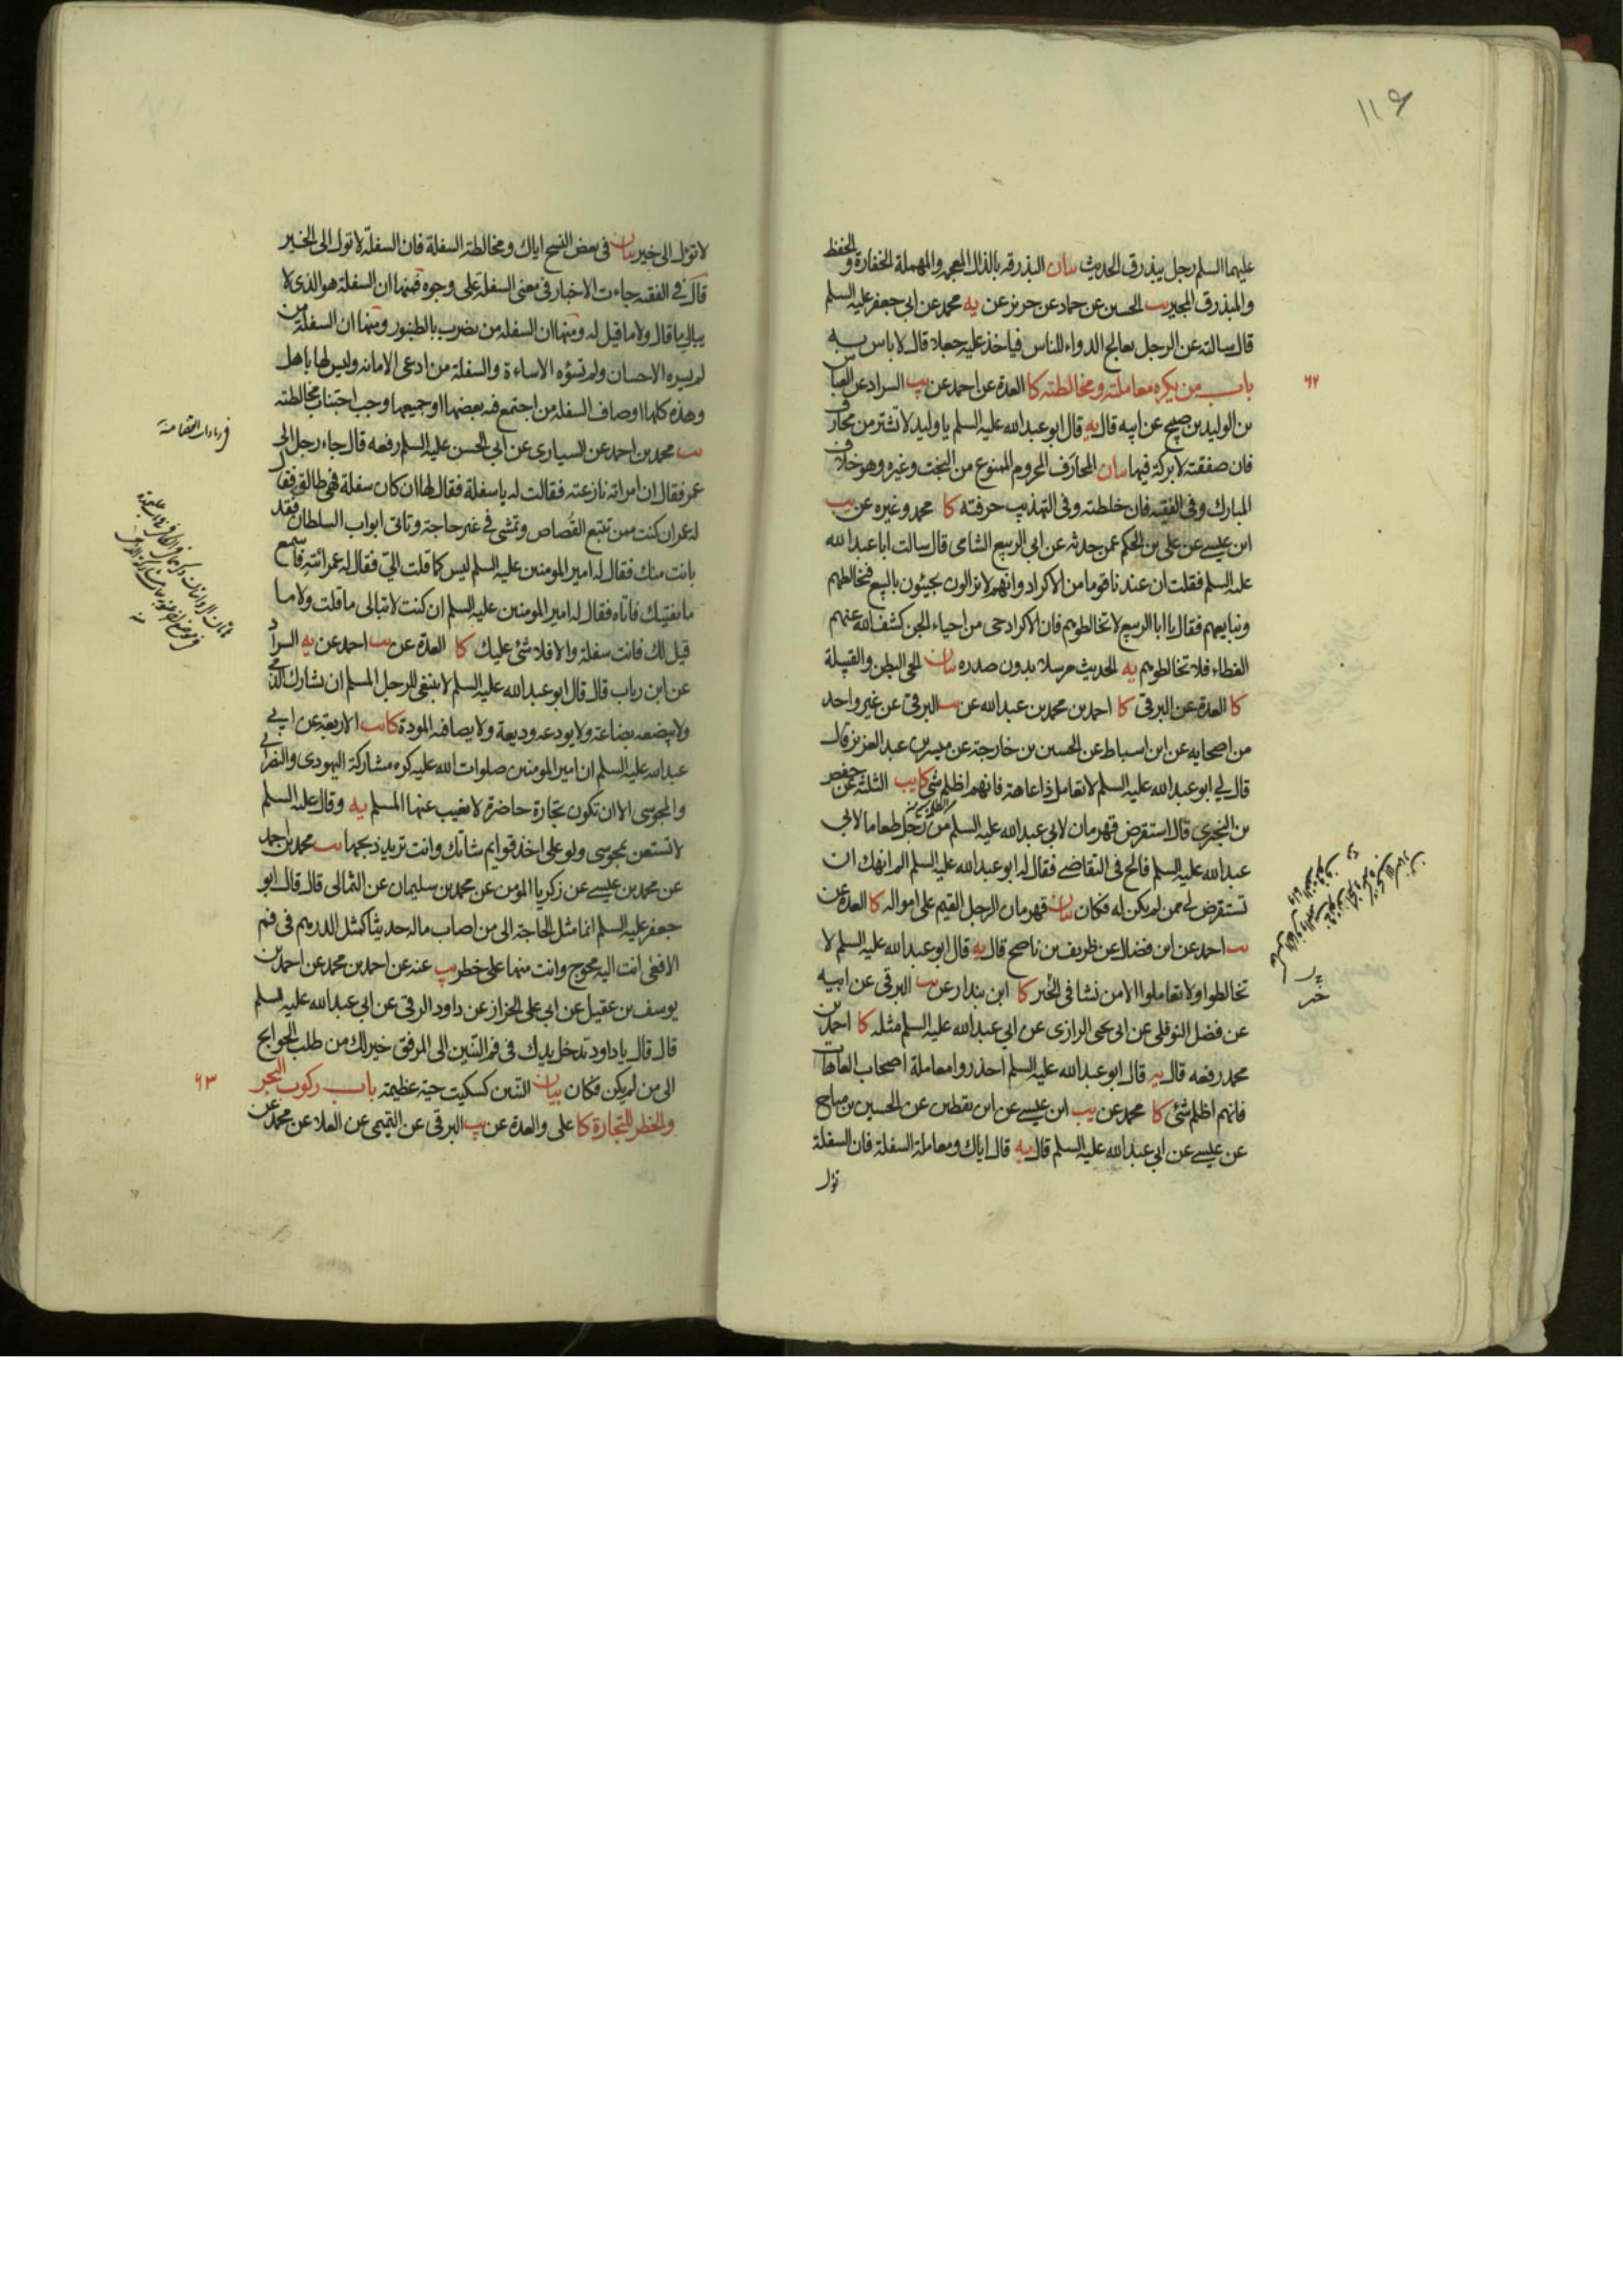 ١١٩
عليهما السلم رجل يبذرق الحديث بيان البذرقه بالذال المعجمه والمهملة الخفارة والحفظ
والمبذرق المجير يب الحسين عن حماد عن حريز عن يه محمد عن ابي جعفر عليه السلم
قال سالته عن الرجل يعالج الدواء للناس فياخذ عليه جعلا قال لا باس به
باب من يكره معاملته ومخالطته كا العدة عن احمد عن يب السراد عن العباس
٦٢
بن الوليد بن صبيح عن ابيه قال يه قال ابو عبدالله عليه السلم يا وليد لا تشتر من محارف
فان صفقته لا بركة فيها بيان المحارَف المحروم الممنوع من البخت وغيره وهو خلاف
المبارك وفى الفقيه فان خلطته وفى التهذيب حرفته كا محمد وغيره عن يب
ابن عيسى عن على بن الحكم عمن حدثه عن ابي الربيع الشامى قال سالت ابا عبدالله
عليه السلم فقلت ان عندنا قوما من الاكراد وانهم لا يزالون يجيئون بالبيع فنخالطهم
ونبايعهم فقال يا ابا الربيع لا تخالطوهم فان الاكراد حى من احياء الجن كشف الله عنهم
الغطاء فلا تخالطوهم يه الحديث مرسلا بدون صدره بيان الحى البطن والقبيلة
كا العدة عن البرقى كا احمد بن محمد بن عبدالله عن يب البرقى عن غير واحد
من اصحابه عن ابن اسباط عن الحسين بن خارجة عن ميسر بن عبد العزيز قال
قال لي ابو عبدالله عليه السلم لا تعامل ذا عاهة فانهم اظلم شئ كا يب الثلثة عن حفص
بن البخترى قال استقرض قهرمان لابي عبدالله عليه السلم من رجل طعاما لابي
عبدالله عليه السلم فالح فى التقاضى فقال له ابو عبدالله عليه السلم الم انهك ان
تستقرض لى ممن لم يكن له فكان بيان قهرمان الرجل القيم على امواله كا العدة عن
يب احمد عن ابن فضال عن ظريف بن ناصح قال يه قال ابو عبدالله عليه السلم لا
تخالطوا ولا تعاملوا الا من نشا فى الخير كا ابن بندار عن يب البرقى عن ابيه
عن فضل النوفلى عن ابى يحيى الرازى عن ابي عبدالله عليه السلم مثله كا احمد بن
محمد رفعه قال يه قال ابو عبدالله عليه السلم احذروا معاملة اصحاب العاهات
فانهم اظلم شئ كا محمد عن يب ابن عيسى عن ابن يقطين عن الحسين بن مياح
عن عيسى عن ابي عبدالله عليه السلم قال يه قال اياك ومعاملة السفلة فان السفلة
تؤل
لا تؤل الى خير بيان فى بعض النسخ اياك ومخالطة السفلة فان السفلة لا تول الى الخير
قال فى الفقيه جاءت الاخبار فى معنى السفلة على وجوه فمنها ان السفلة هو الذى لا
يبالي ما قال ولا ما قيل له ومنها ان السفله من يضرب بالطنبور ومنها ان السفلة من
لم يسره الاحسان ولم تسؤه الاساءة والسفلة من ادعى الامانه وليس لها باهل
وهذه كلها اوصاف السفله من اجتمع فيه بعضها او جميعها وجب اجتناب مخالطته
يب محمد بن احمد عن السيارى عن ابى الحسن عليه السلم رفعه قال جاء رجل الى
عمر فقال ان امراته نازعته فقالت له يا سفلة فقال لها ان كان سفلة فهى طالق فقال
له عمر ان كنت ممن تتبع القُصاص وتمشى فى غير حاجة وتاتى ابواب السلطان فقد
بانت منك فقال له امير المومنين عليه السلم ليس كما قلت الىّ فقال له عمر ائته فاسمع
ما يفتيك فاتاه فقال له امير المومنين عليه السلم ان كنت لا تبالى ما قلت ولا ما
قيل لك فانت سفلة والا فلا شئ عليك كا العدة عن يب احمد عن يه السراد
عن ابن رياب قال قال ابو عبدالله عليه السلم لا ينبغى للرجل المسلم ان يشارك الذمى
ولا يبضعه بضاعة ولا يودعه وديعة ولا يصافيه المودة كا يب الاربعة عن ابي
عبدالله عليه السلم ان امير المومنين صلوات الله عليه كره مشاركة اليهودى والنصرانى
والمجوسى الا ان تكون تجارة حاضرة لا يغيب عنها المسلم يه وقال عليه السلم
لا تستعن بمجوسى ولو على اخذ قوايم شاتك وانت تريد ذبحها يب محمد بن احمد
عن محمد بن عيسى عن زكريا المومن عن محمد بن سليمان عن الثمالى قال قال ابو
جعفر عليه السلم انما مثل الحاجة الى من اصاب ماله حديثا كمثل الدرهم فى فم
الافعى انت اليه محوج وانت منها على خطر يب عنه عن احمد بن محمد عن احمد بن
يوسف بن عقيل عن ابى على الخزاز عن داود الرقى عن ابى عبدالله عليه السلم
قال قال يا داود تدخل يدك فى فم التنين الى المرفق خير لك من طلب الحوايج
الى من لم يكن فكان بيان التنين كسكيت حية عظيمة باب ركوب البحر
٦٣
والخطر للتجارة كا على والعدة عن يب البرقى عن التيمى عن العلا عن محمد عن